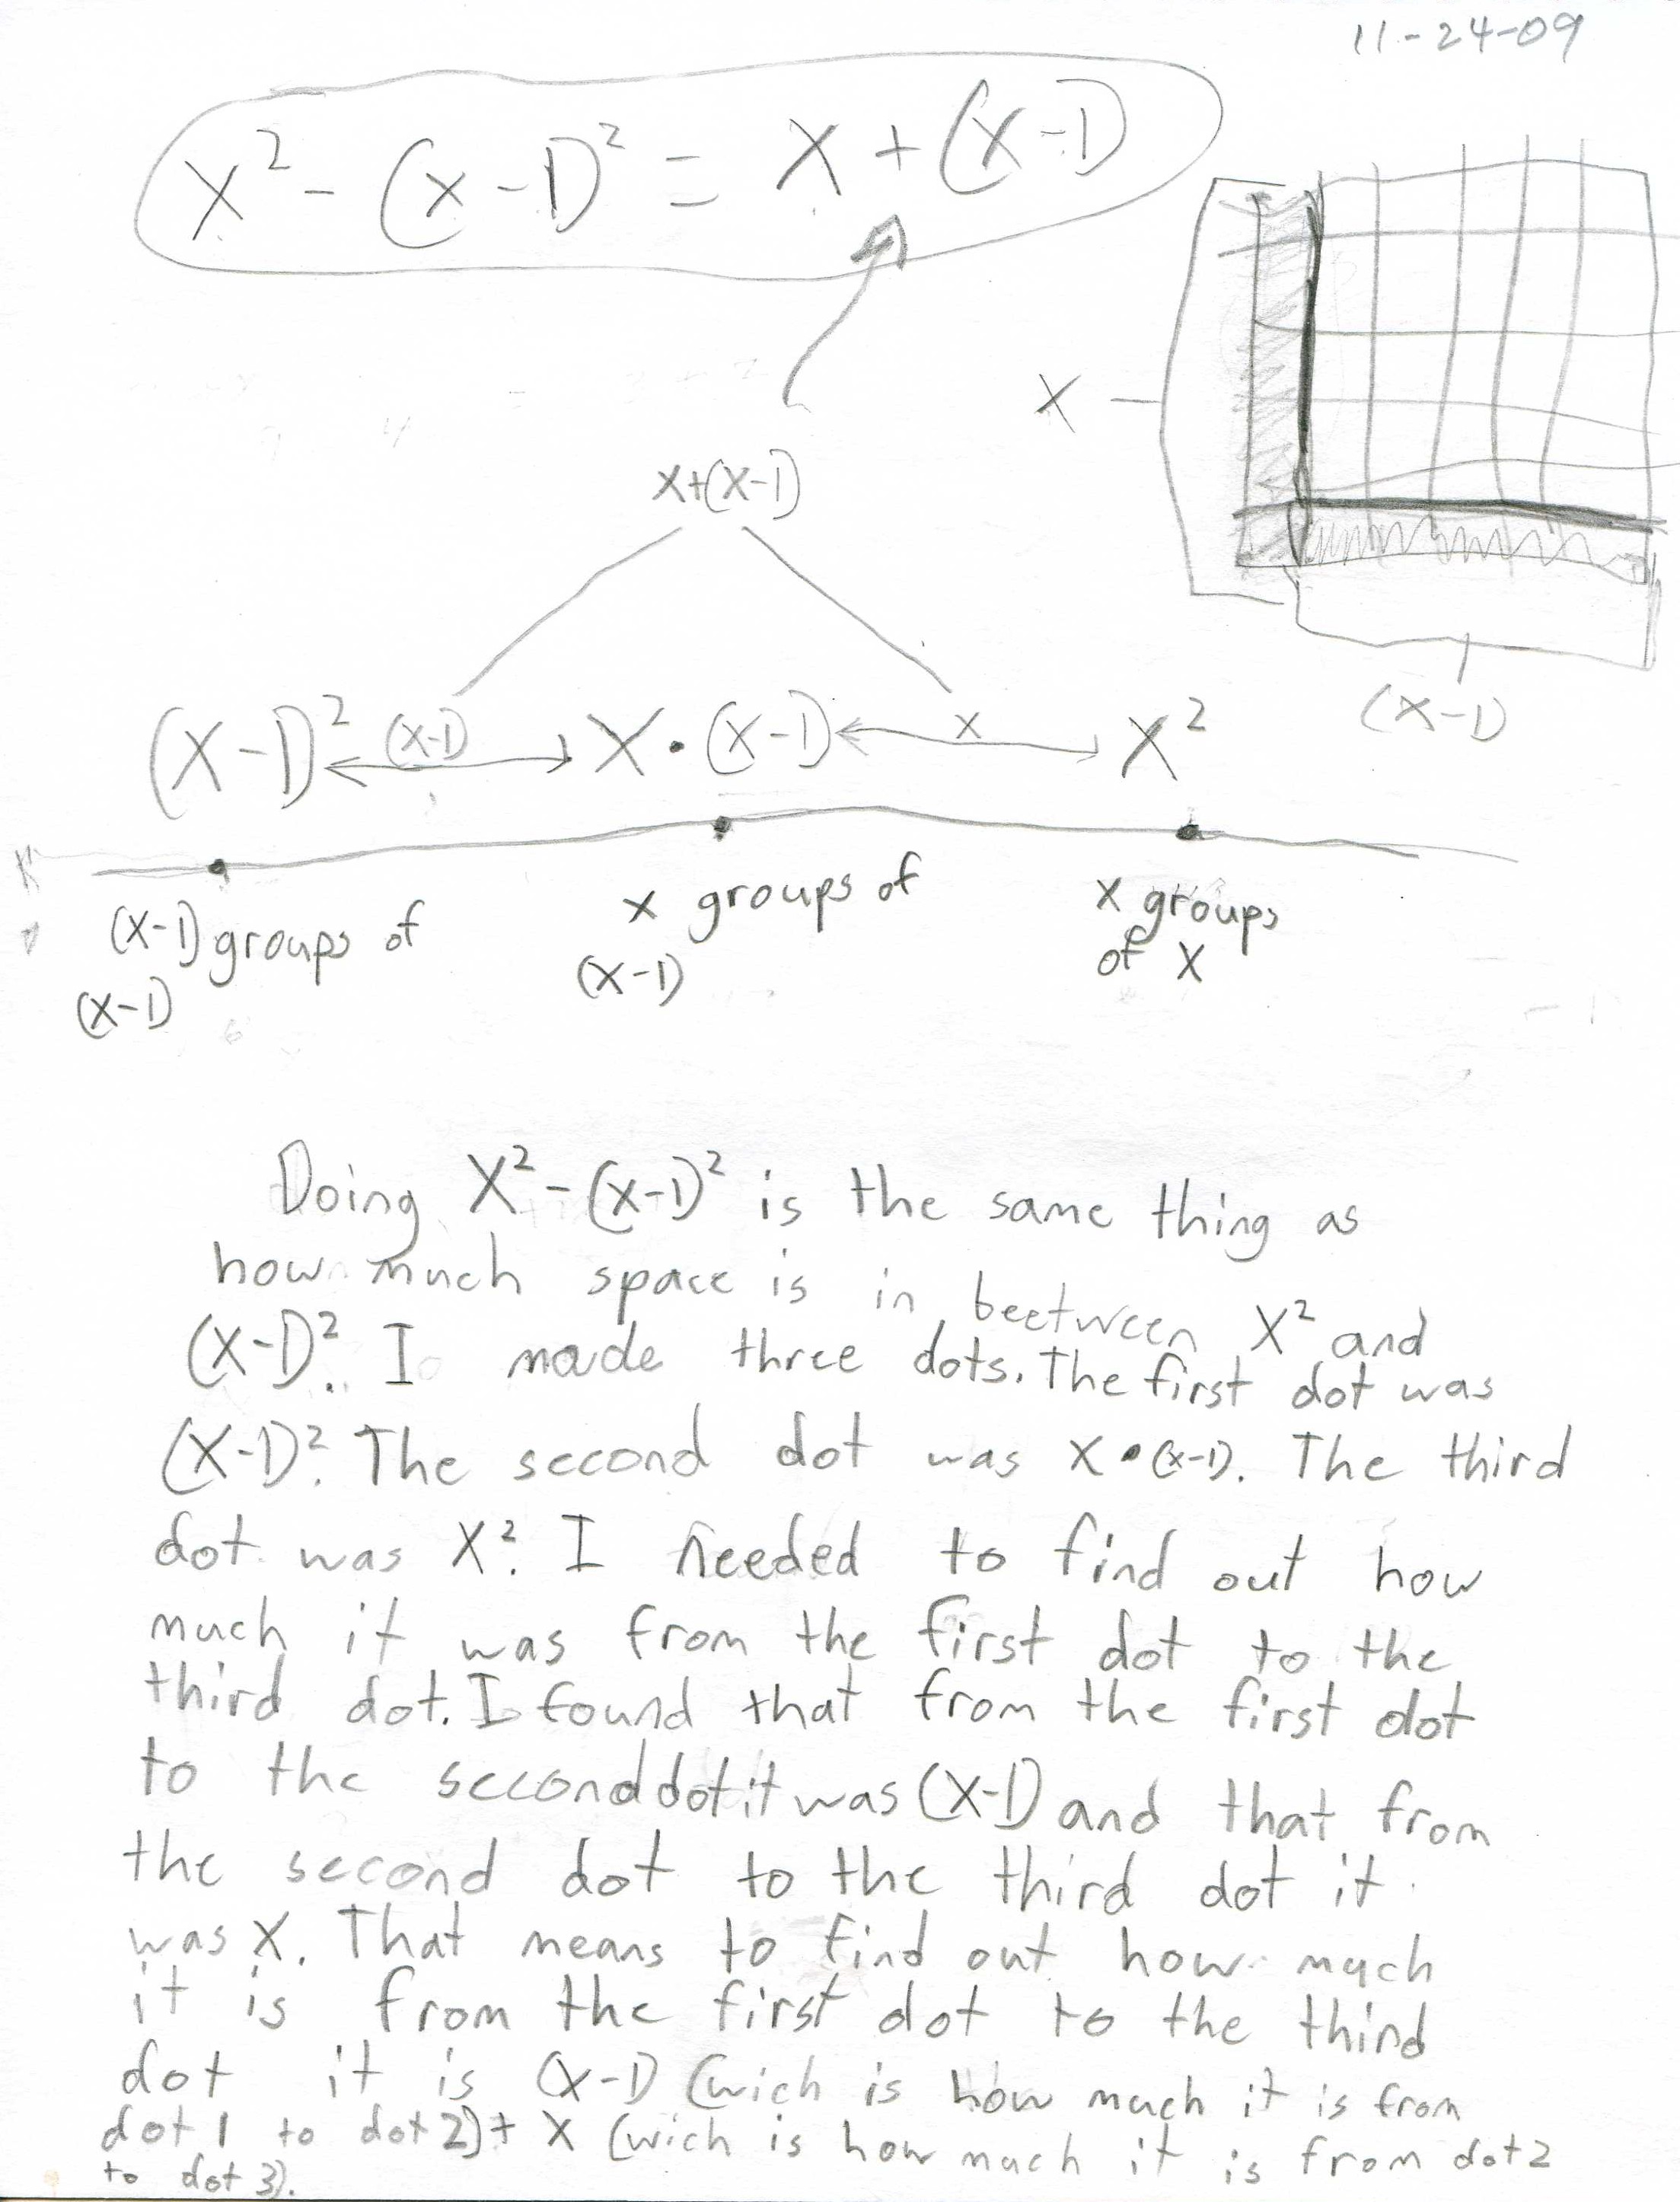 11-24-09
X² - (X-1)² = X + (X-1)
X
X+(X-1)
(X-1)
(X-1)² (X-1) X • (X-1) X X²
(X-1) groups of
(X-1)
X groups of
(X-1)
X groups
of X
Doing X² - (X-1)² is the same thing as
how much space is in beetween X² and
(X-1)². I made three dots. The first dot was
(X-1)². The second dot was X • (X-1). The third
dot was X². I needed to find out how
much it was from the first dot to the
third dot. I found that from the first dot
to the second dot it was (X-1) and that from
the second dot to the third dot it
was X. That means to find out how much
it is from the first dot to the third
dot it is (X-1) (wich is how much it is from
dot 1 to dot 2) + X (wich is how much it is from dot 2
to dot 3).